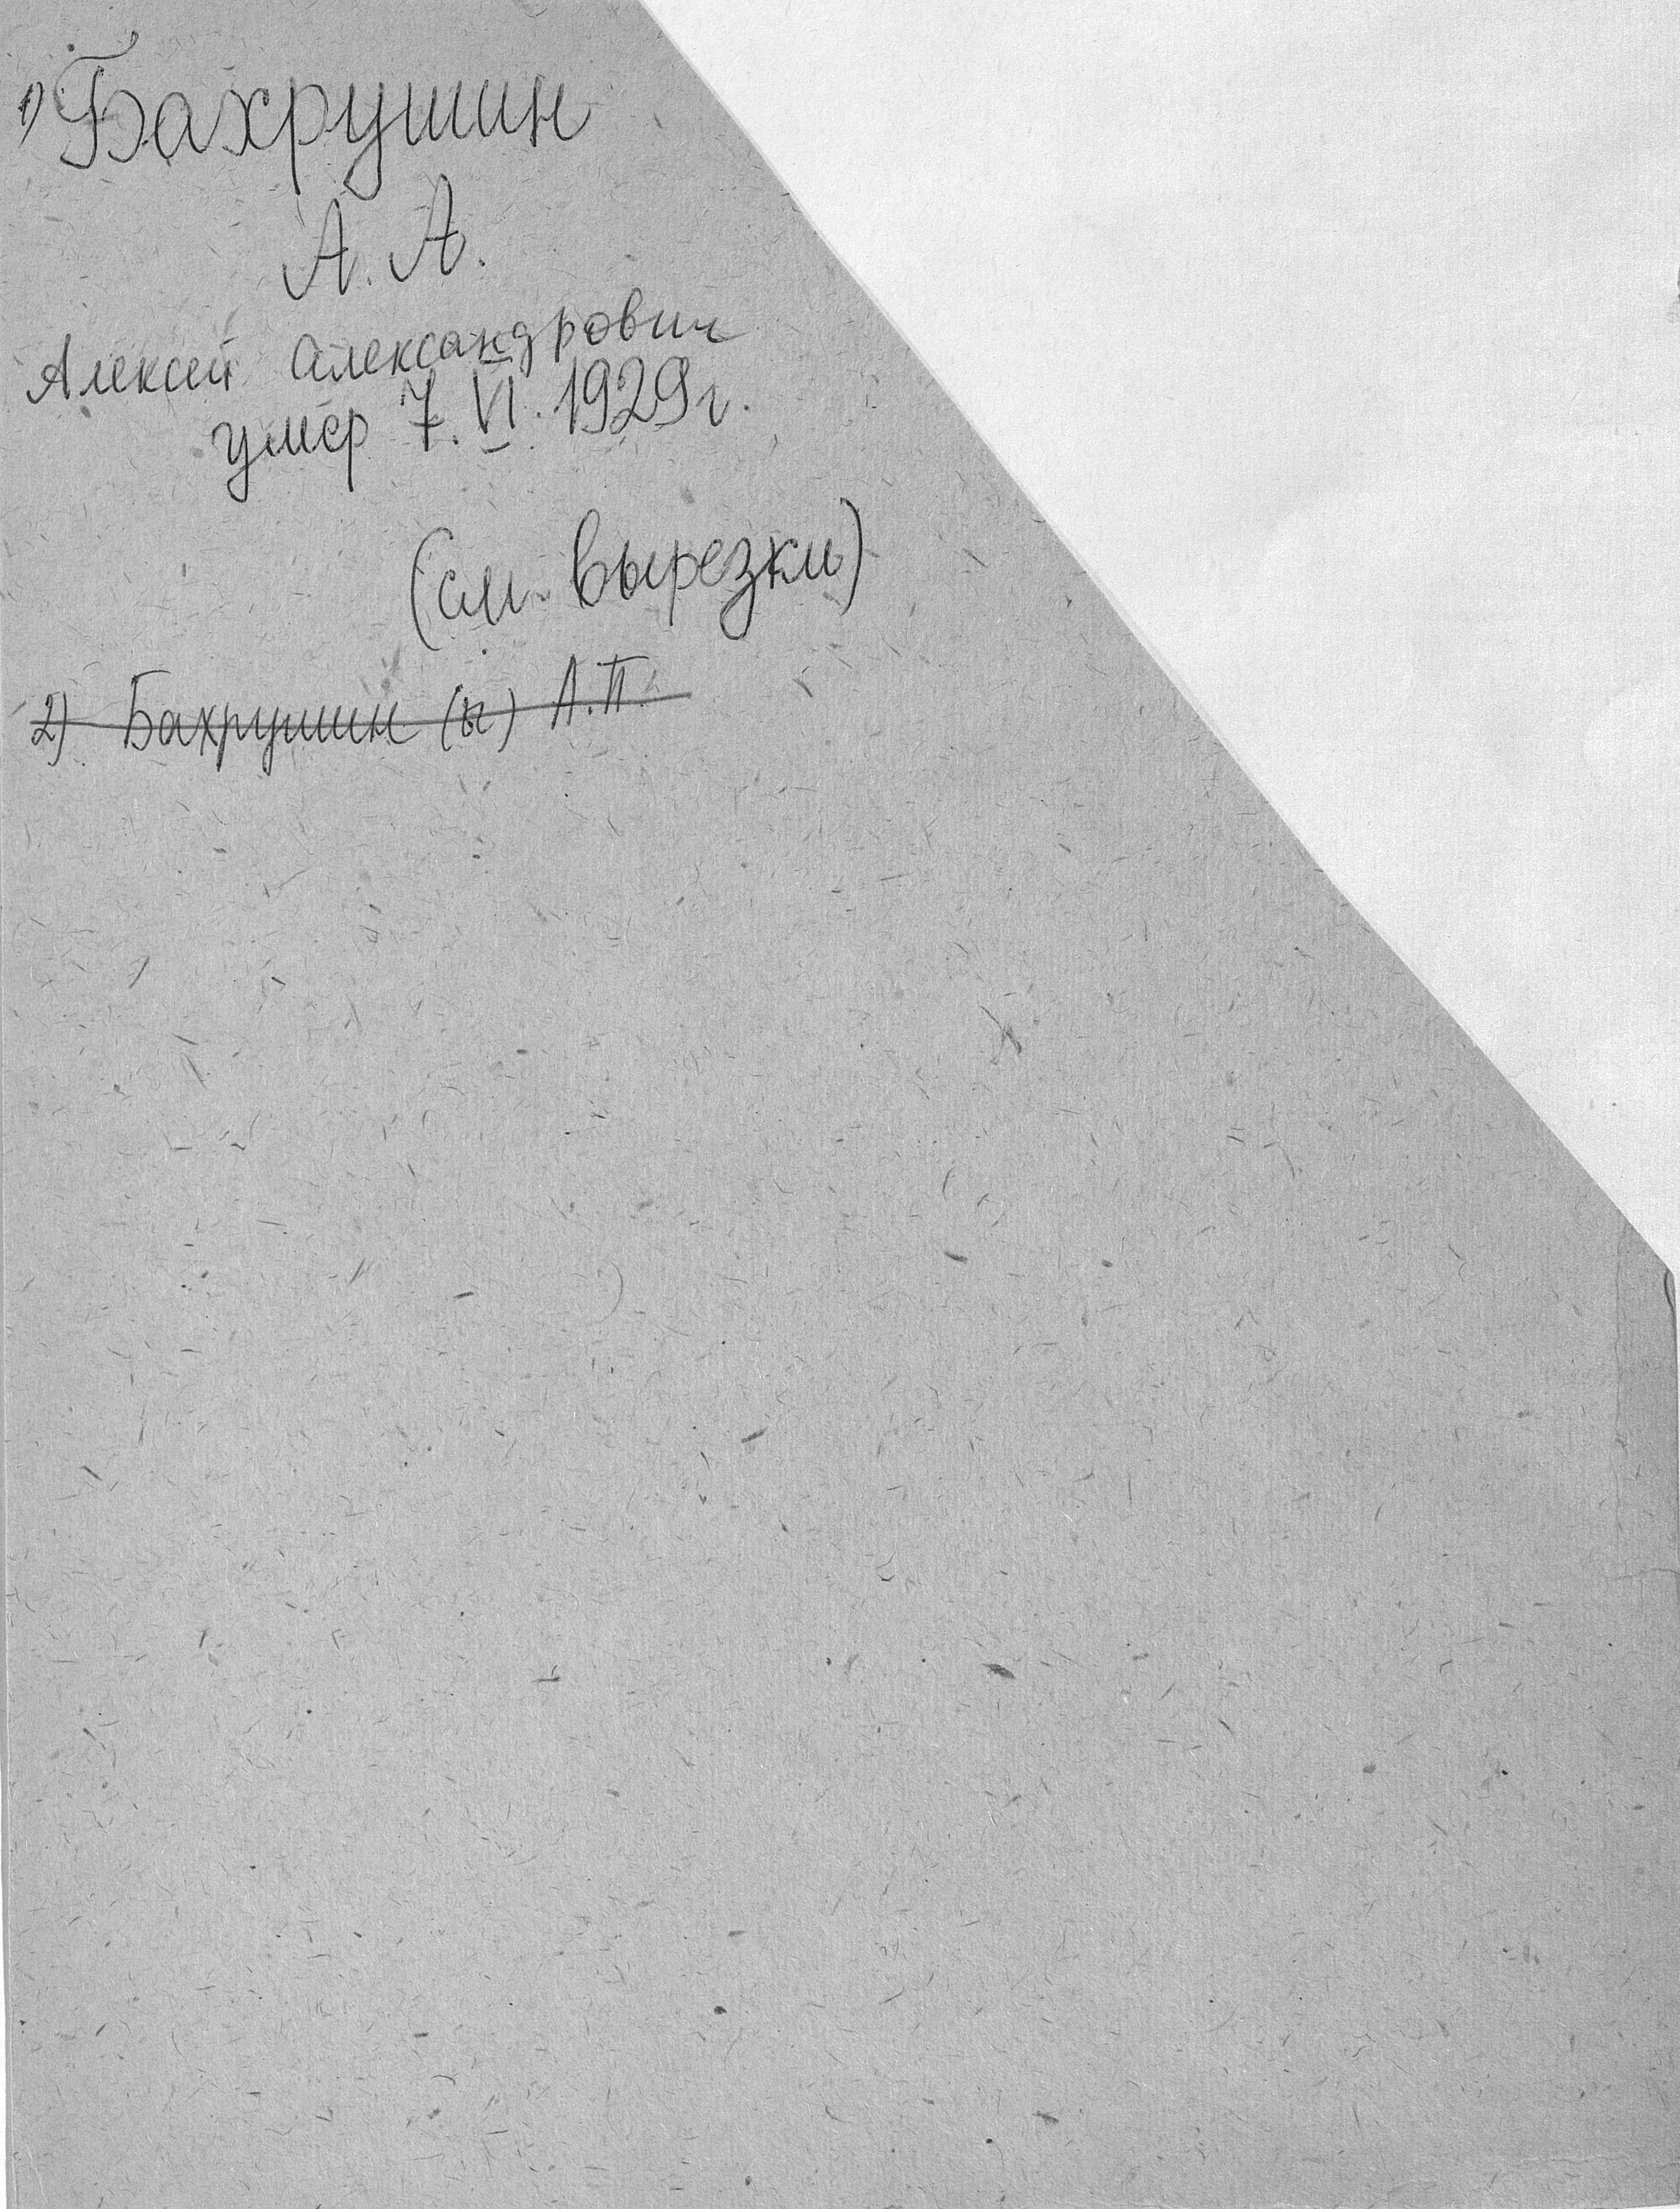 1) Бахрушин
А. А.
Алексей Александрович
умер 7. VI. 1929 г.
(см. вырезки)
2) Бахрушин (ы) А. П.